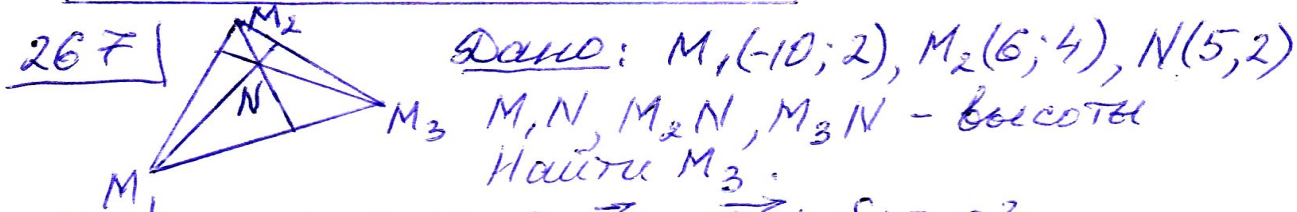 267
M₂
N
M₃
M₁
Дано: M₁(-10; 2), M₂(6; 4), N(5, 2)
M₁N, M₂N, M₃N - высоты
Найти M₃.